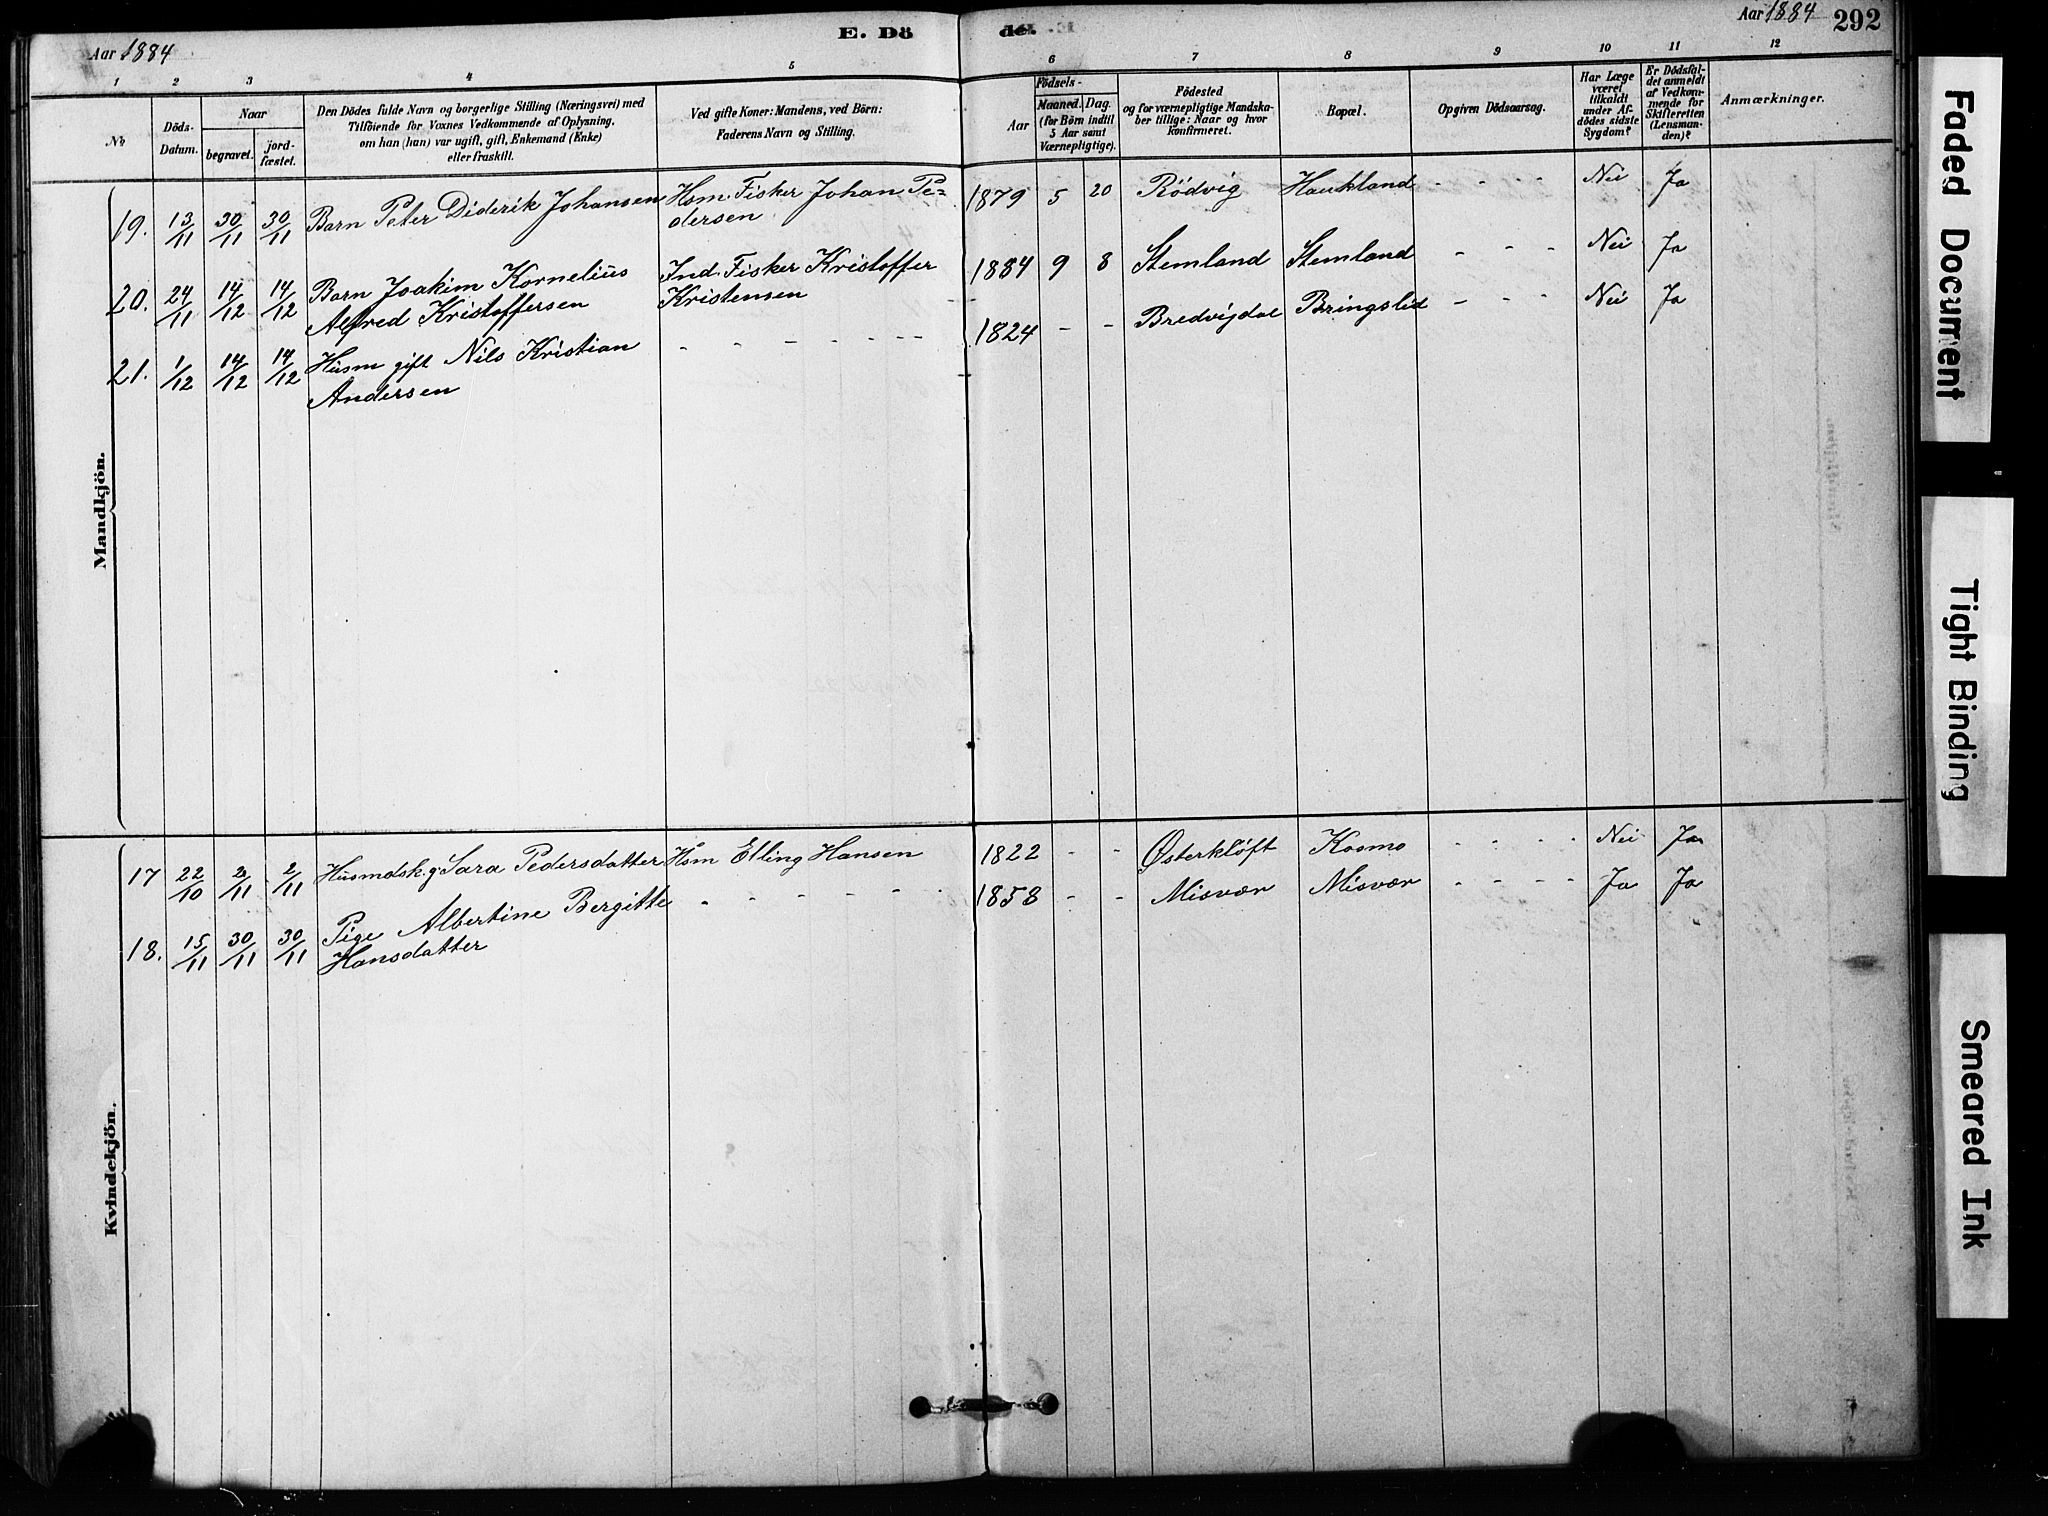 Aar 1884
E. Dö
de.
Aar 1884
292
1
2
3
4
5
6
7
8
9
10
11
12
No
Döds-
Datum.
Naar
begravet.
jord-
fæstet.
Den Dödes fulde Navn og borgerlige Stilling (Næringsvei) med
Tilföiende for Voxnes Vedkommende af Oplysning,
om han (hun) var ugift, gift, Enkemand (Enke)
eller fraskilt.
Ved gifte Koner: Mandens, ved Börn:
Faderens Navn og Stilling.
Födsels-
Aar
Maaned.
Dag.
(for Börn indtil
5 Aar samt
Værnepligtige).
Födested
og for værnepligtige Mandska-
ber tillige: Naar og hvor
konfirmeret.
Bopæl.
Opgiven Dödsaarsag.
Har Læge
været
tilkaldt
under Af-
dödes sidste
Sygdom?
Er Dödsfal-
det anmeldt
af Vedkom-
mende for
Skifteretten
(Lensman-
den)?
Anmærkninger.
Mandkjön.
19. 13/11 30/11 30/11 Barn Peter Diderik Johansen Hsm. Fisker Johan Pe- 1879 5 20 Rödvig Haukland - - - - Nei Ja
dersen
20. 24/11 14/12 14/12 Barn Joakim Kornelius Ind. Fisker Kristoffer 1884 9 8 Stemland Stemland - - - - Nei Ja
Alfred Kristoffersen Kristensen
21. 1/12 14/12 14/12 Husm gift Nils Kristian - - - - - - - 1824 - - Bredvigdal Bringslid - - - - Nei Ja
Andersen
Kvindekjön.
17 22/10 2/11 2/11 Husmdsk. g. Sara Pedersdatter Hsm Elling Hansen 1822 - - Østerkløft Kosmo - - - - Nei Ja
18. 15/11 30/11 30/11 Pige Albertine Bergitte - - - - - 1858 - - Misvær Misvær - - - - Ja Ja
Hansdatter
Faded Document
Tight Binding
Smeared Ink